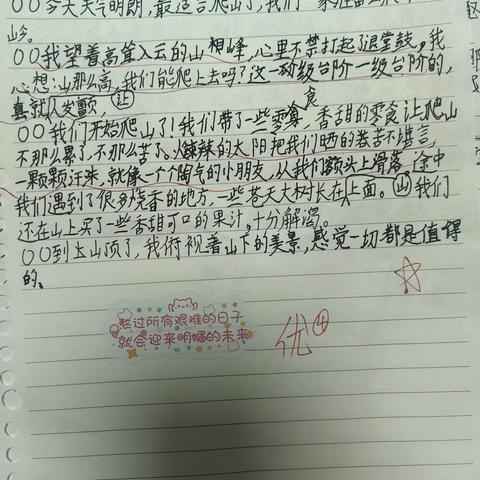 ○○今天天气明朗,最适合爬山了,我们一家准备去爬
山今。
○○我望着高耸入云的山相峰,心里不禁打起了退堂鼓,我
心想:山那么高,我们能爬上去吗?这一级台阶一级台阶的,
真就人发颤,
○○我们开始爬山了!我们带了一些零食,香甜的零食让爬山
不那么累了,不那么苦了。火辣辣的太阳把我们晒的卷苦不堪言,
一颗颗汗珠,就像一个个陶气的小朋友,从我们额头上滑落,途中
我们遇到了很多烧香的地方,一些苍天大树长在上面。山我们
还在山上买了一些香甜可口的果汁,十分解渴。
○○到达山顶了,我俯视着山下的美景,感觉一切都是值得
的。
熬过所有艰难的日子
就会迎来明媚的未来
优